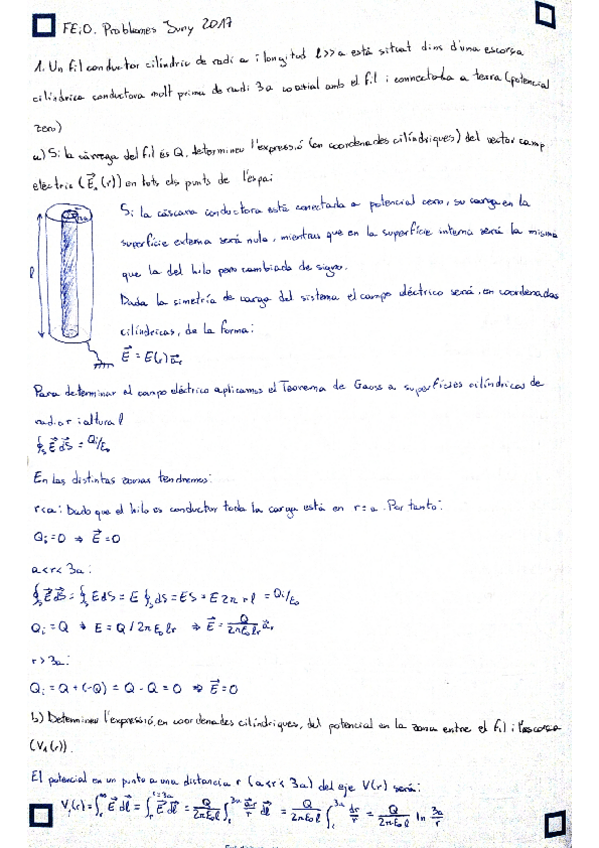 FEiO. Problemes Juny 2017
1. Un fil conductor cilíndric de radi a i longitud l>>a està situat dins d'una escorça
cilíndrica conductora molt prima de radi 3a coaxial amb el fil i connectada a terra (potencial
zero)
a) Si la càrrega del fil és Q, determineu l'expressió (en coordenades cilíndriques) del vector camp
elèctric (E⃗₁(r)) en tots els punts de l'espai
Si la cáscara conductora está conectada a potencial cero, su carga en la
superficie externa será nula, mientras que en la superficie interna será la misma
que la del hilo pero cambiada de signo.
Dada la simetría de carga del sistema el campo eléctrico será, en coordenadas
cilíndricas, de la forma:
l
E⃗ = E(r) u⃗r
Para determinar el campo eléctrico aplicamos el Teorema de Gauss a superficies cilíndricas de
radio r i altura l
∮s E⃗ dS⃗ = Qi/ε₀
En las distintas zonas tendremos:
r<a: Dado que el hilo es conductor toda la carga está en r=a. Por tanto:
Qi=0 ⇒ E⃗=0
a<r<3a:
∮s E⃗ dS⃗ = ∮s EdS = E ∮s dS = ES = E 2π r l = Qi/ε₀
Qi = Q ⇒ E = Q/2πε₀lr ⇒ E⃗ = Q/2πε₀lr u⃗r
r>3a:
Qi = Q + (-Q) = Q - Q = 0 ⇒ E⃗=0
b) Determineu l'expressió, en coordenades cilíndriques, del potencial en la zona entre el fil i l'escorça
(V₁(r)).
El potencial en un punto a una distancia r (a<r<3a) del eje V(r) será:
V₁(r) = ∫r^∞ E⃗ dl⃗ = ∫r^r=3a E⃗ dl⃗ = Q/2πε₀l ∫r^3a u⃗r/r dl⃗ = Q/2πε₀l ∫r^3a dr/r = Q/2πε₀l ln 3a/r